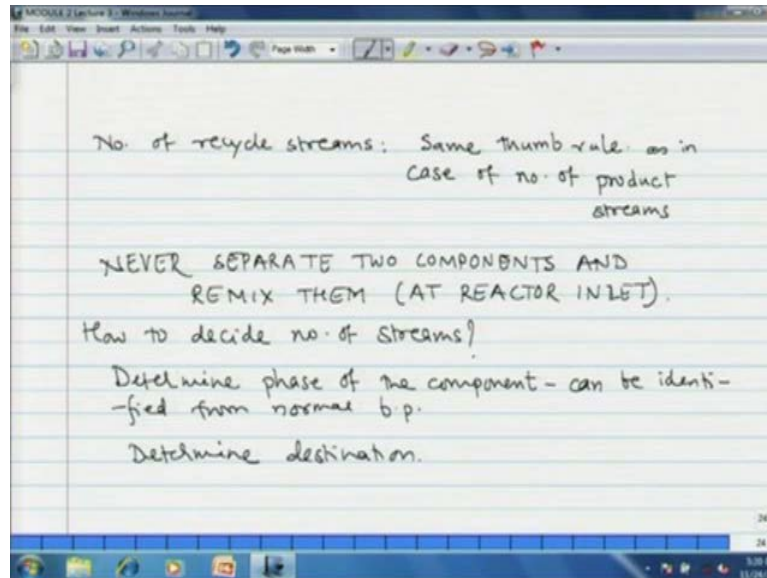 MODULE 2 Lecture 3 - Windows Journal
File Edit View Insert Actions Tools Help
Page Width
No. of recycle streams: Same thumb rule as in
case of no. of product
streams
NEVER SEPARATE TWO COMPONENTS AND
REMIX THEM (AT REACTOR INLET).
How to decide no. of streams?
Determine phase of the component - can be identi-
-fied from normal b.p.
Determine destination.
24
24